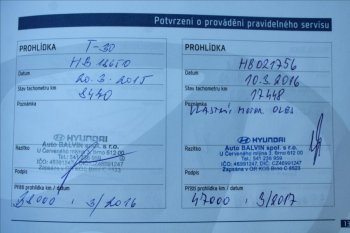 Potvrzení o provádění pravidelného servisu
PROHLÍDKA T-30
HB 12650
Datum 20.3.2015
Stav tachometru km 8440
Poznámka
Razítko HYUNDAI
Auto BALVIN spol. s r.o.
U Červeného mlýna 3, Brno 612 00
Tel.: 541 236 959
IČO: 46961247, DIČ: CZ46961247
Zapsána v OR KOS Brno C 6623
Podpis
Příští prohlídka km / datum
22000 , 3/2016
PROHLÍDKA
HB021756
Datum 10.3.2016
Stav tachometru km 17448
Poznámka
VLASTNÍ MOTOR. OLEJ
Razítko HYUNDAI
Auto BALVIN spol. s r.o.
U Červeného mlýna 3, Brno 612 00
Tel.: 541 236 959
IČO: 46961247, DIČ: CZ46961247
Zapsána v OR KOS Brno C 6623
Podpis
Příští prohlídka km / datum
47000 , 3/2017